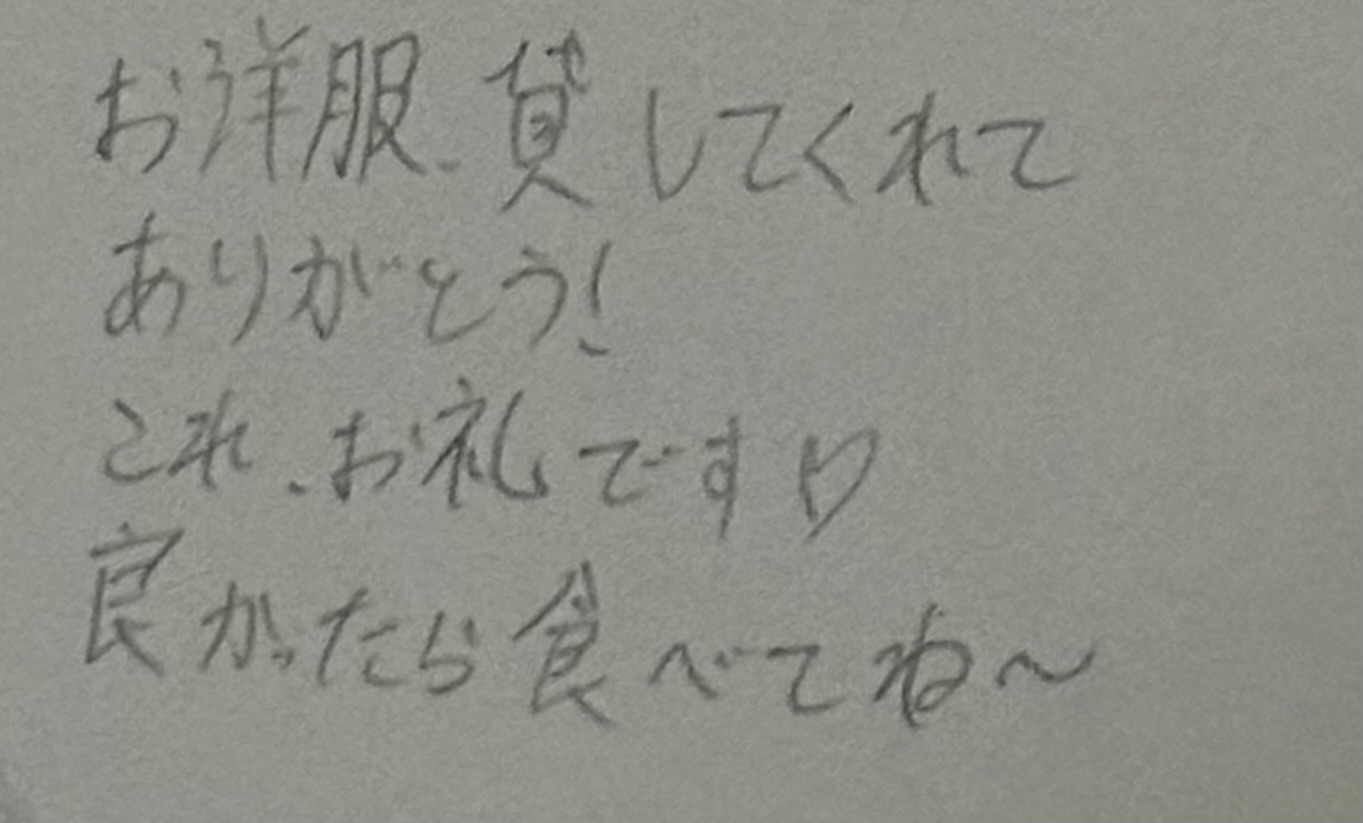 お洋服、貸してくれて
ありがとう!
これ、お礼です♡
良かったら食べてね〜